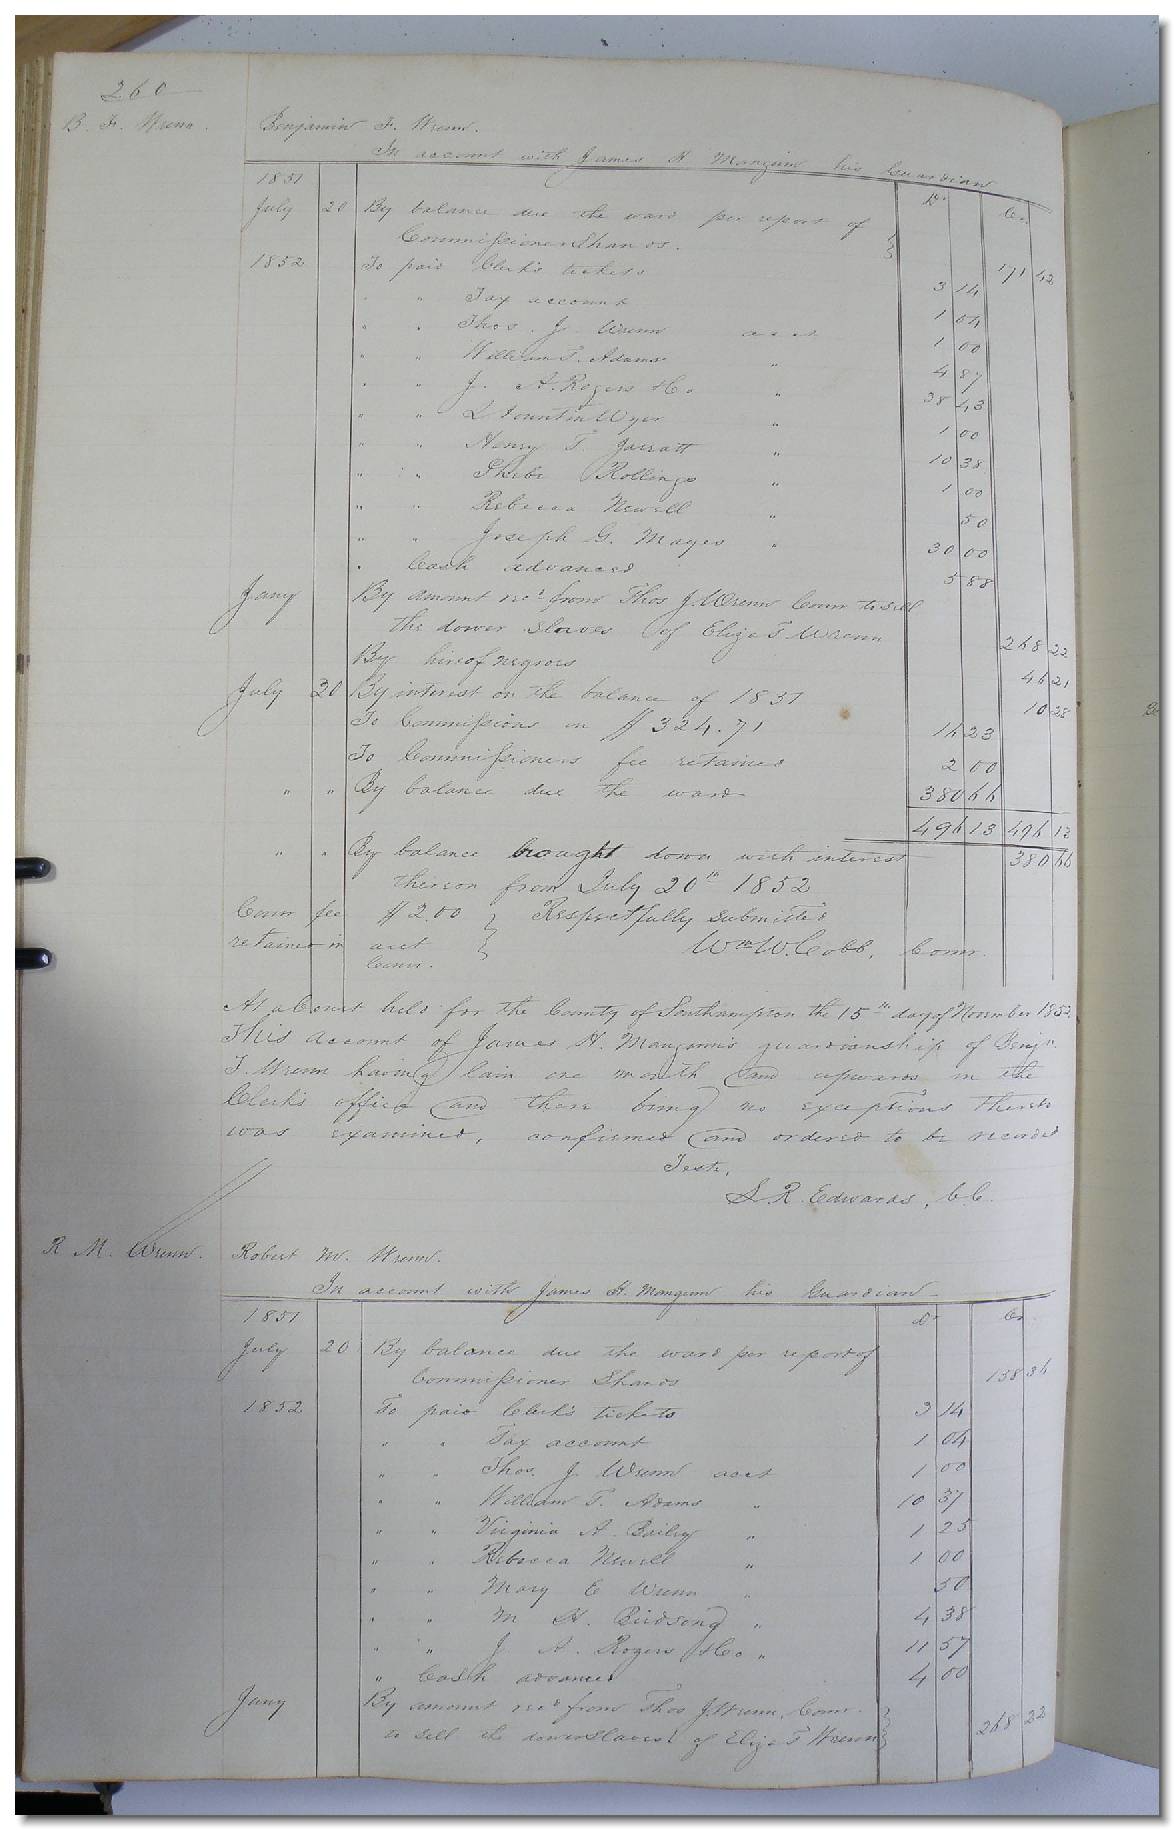 260
B. F. Wrenn.
Benjamin F. Wrenn.
In account with James H Mangum his Guardian
1851 Dr Cr.
July 20 By balance due the ward per report of
Commissioner Shands. 171 42
1852 To paid Clerk's tickets 3 14
" " Tax account 1 04
" " Thos. J. Wrenn acct 1 00
" " William T. Adams " 4 87
" " J. A. Rogers & Co " 38 43
" " " 1 00
" " Henry T. Jarratt " 10 38
" " Phebe Rollings " 1 00
" " Rebecca Newell " 50
" " Joseph G. Mayes " 30 00
" Cash advanced 5 88
Jany By amount recd from Thos J. Wrenn Comr to sell
the dower slaves of Eliza T Wrenn 268 22
By hire of negroes 46 21
July 20 By interest on the balance of 1851 10 28
To Commissions on $324.71 16 23
To Commissioners fee retained 2 00
" " By balance due the ward 380 66
496 13 496 13
" " By balance brought down with interest 380 66
thereon from July 20th 1852
Comr fee $2.00 } Respectfully submitted
retained in acct } Wm W. Cobb, Comr.
Comr.
At a Court held for the County of Southampton the 15th day of November 1852
This account of James H. Mangum's guardianship of Benjn.
F. Wrenn having lain one month and upwards in the
Clerk's office and there being no exceptions thereto
was examined, confirmed and ordered to be recorded
Teste,
L. R. Edwards, C.C.
R. M. Wrenn.
Robert M. Wrenn.
In account with James H. Mangum his Guardian
1851 Dr Cr
July 20 By balance due the ward per report of
Commissioner Shands 158 36
1852 To paid Clerk's tickets 3 14
" " Tax account 1 04
" " Thos. J. Wrenn acct 1 00
" " William T. Adams " 10 37
" " Virginia A. Bailey " 1 25
" " Rebecca Newell " 1 00
" " Mary E Wrenn " 50
" " M H. Birdsong " 4 38
" " J. A. Rogers & Co " 11 57
" Cash advanced 4 00
Jany By amount recd from Thos J. Wrenn, Comr.
to sell the dower slaves of Eliza T Wrenn 268 22